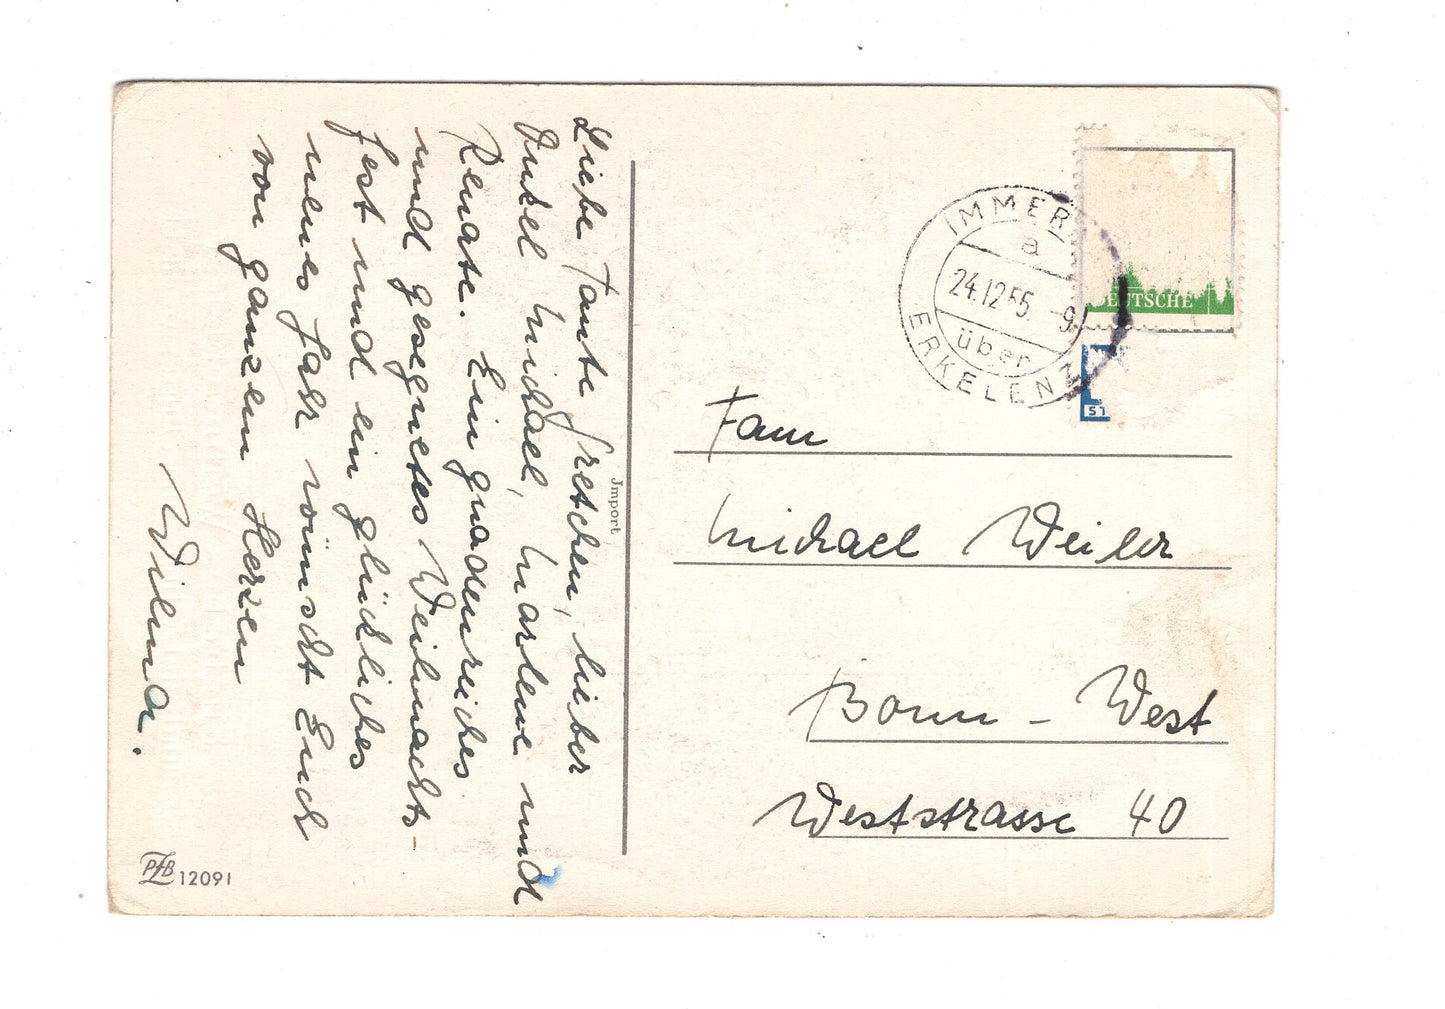 Liebe Tante Gretchen, lieber
Onkel Michael, Marlene und
Renate. Ein gnadenreiches
und gesegnetes Weihnachts-
fest und ein glückliches
neues Jahr wünscht Euch
von ganzem Herzen
Wilma.
PFB 12091
Jmport
IMMER
a
24.12.55.-9
über
ERKELENZ
DEUTSCHE
Fam
Michael Weiler
Bonn - West
Weststrasse 40